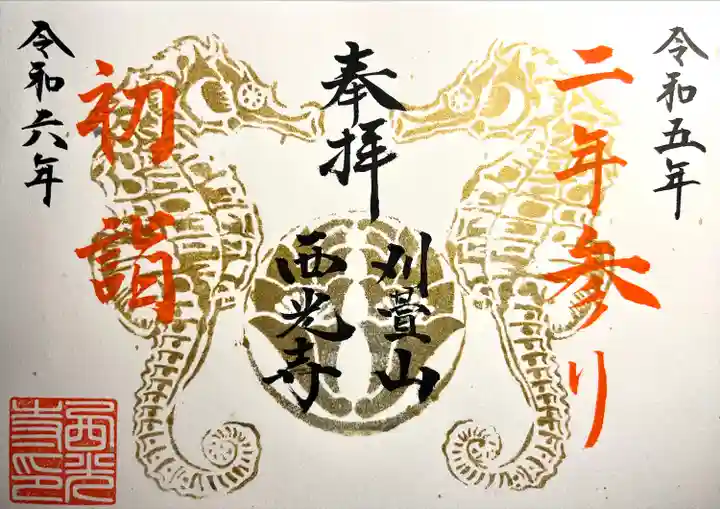 令和五年
二年参り
奉拝
刈畳山
西光寺
初詣
令和六年
西光寺印